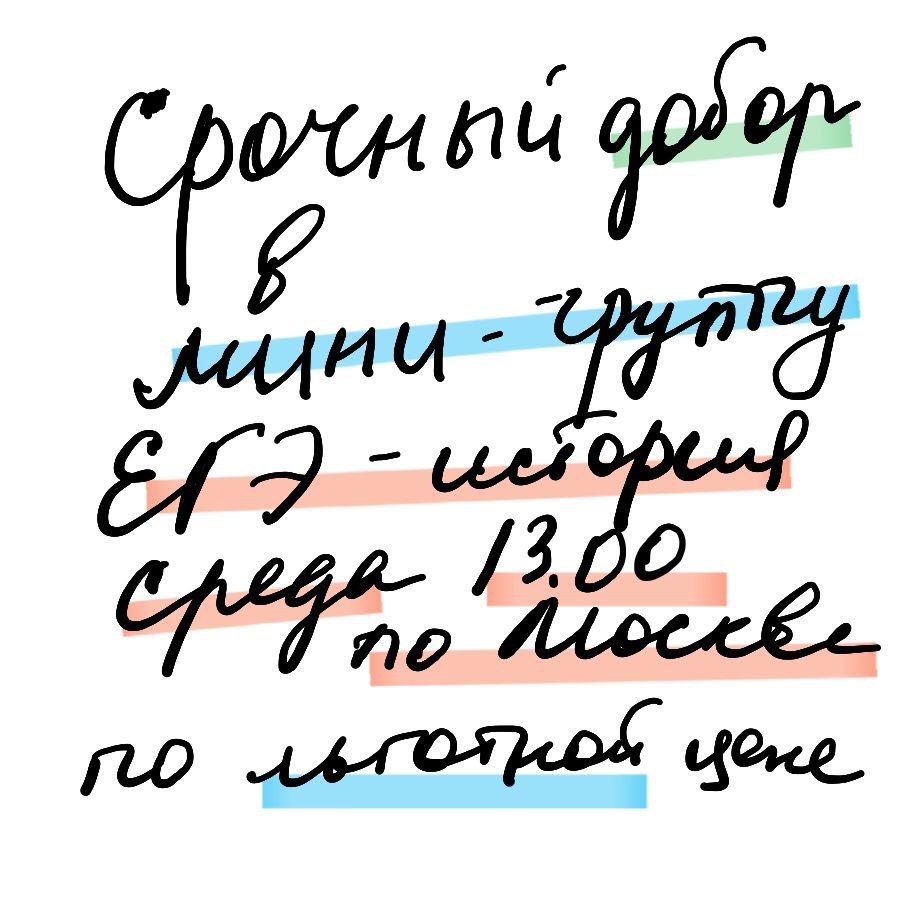 Срочный добор
в
мини - группу
ЕГЭ - история
среда 13.00
по Москве
по льготной цене